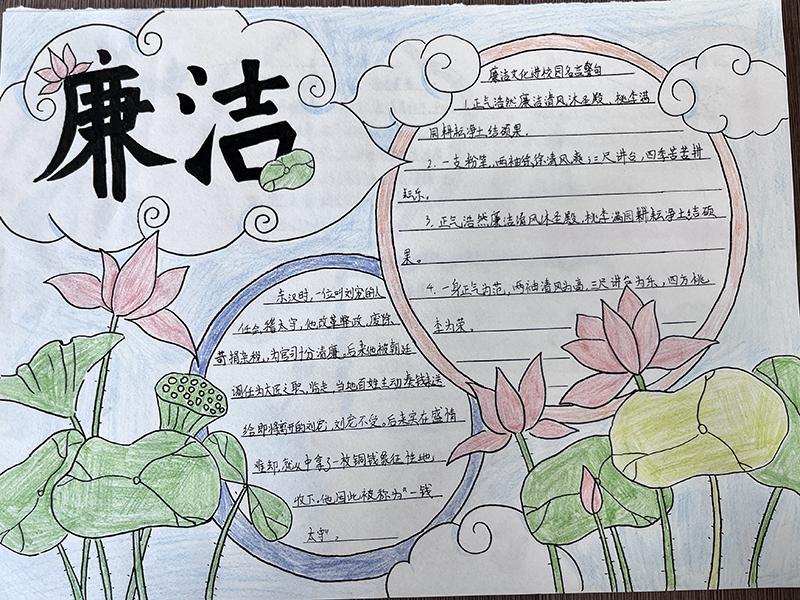 廉洁
廉洁文化进校园名言警句
1.正气浩然廉洁清风沐圣殿、桃李满
园耕耘净土结硕果.
2.一支粉笔,两袖徐徐清风乘三尺讲台,四季苦苦耕
耘乐。
3.正气浩然廉洁清风沐圣殿,桃李满园耕耘净土结硕
果。
4.一身正气为范,两袖清风为高,三尺讲台为乐,四方桃
李为荣。
东汉时,一位叫刘宠的人
任会稽太守,他改革弊政,废除
苛捐杂税,为官十分清廉,后来他被朝廷
调任为大匠之职,临走,当地百姓主动奉钱来送
给即将离开的刘宠,刘宠不受,后来实在盛情
难却,就从中拿了一枚铜钱象征性地
收下.他因此被称为"一钱
太守"。